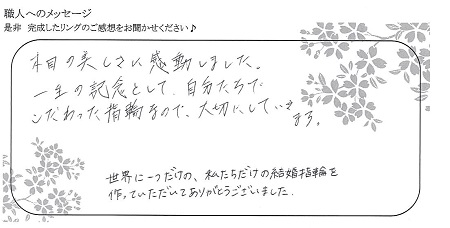 職人へのメッセージ
是非 完成したリングのご感想をお聞かせください♪
木目の美しさに感動しました。
一生の記念として、自分たちで
こだわった指輪なので、大切にしていき
ます。
世界に一つだけの、私たちだけの結婚指輪を
作っていただいてありがとうございました。